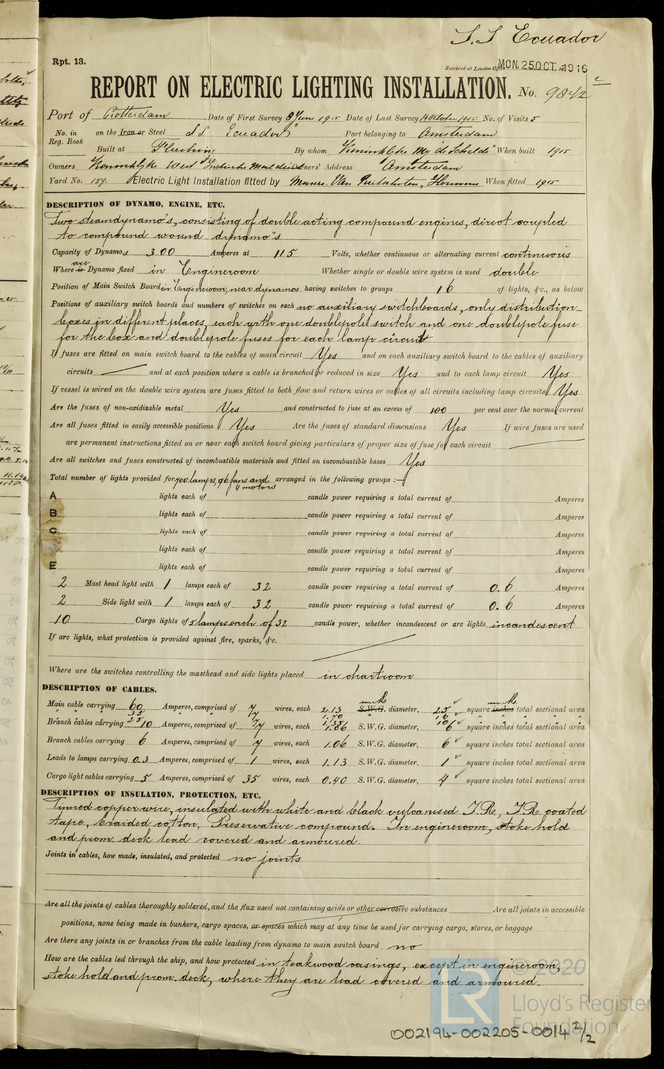 S.S Ecuador
Rpt. 13.
Received at London Office MON. 25 OCT. 1916
REPORT ON ELECTRIC LIGHTING INSTALLATION. No. 9842
Port of Rotterdam Date of First Survey 8 Jun 1915 Date of Last Survey October 1915 No. of Visits 5
No. in Reg. Book on the Iron or Steel S.S. "Ecuador" Port belonging to Amsterdam
Built at Flushing By whom Konink. Mij "de Schelde" When built 1915
Owners Koninklyke West Indische Maildienst Owners' Address Amsterdam
Yard No. 159. Electric Light Installation fitted by Messrs. Van When fitted 1915
DESCRIPTION OF DYNAMO, ENGINE, ETC.
Two steamdynamo's, consisting of double acting compound engines, direct coupled
to compound wound dynamo's
Capacity of Dynamos 300 Amperes at 115 Volts, whether continuous or alternating current continuous
Where are Dynamo fixed in Engineroom Whether single or double wire system is used double
Position of Main Switch Board in Engineroom, near dynamos having switches to groups 16 of lights, &c., as below
Positions of auxiliary switch boards and numbers of switches on each no auxiliary switchboards, only distribution
boxes in different places, each with one doublepole switch and one doublepole fuse
for the box and doublepole fuses for each lamp circuit
If fuses are fitted on main switch board to the cables of main circuit Yes and on each auxiliary switch board to the cables of auxiliary
circuits — and at each position where a cable is branched or reduced in size Yes and to each lamp circuit Yes
If vessel is wired on the double wire system are fuses fitted to both flow and return wires or cables of all circuits including lamp circuits Yes
Are the fuses of non-oxidizable metal Yes and constructed to fuse at an excess of 100 per cent over the normal current
Are all fuses fitted in easily accessible positions Yes Are the fuses of standard dimensions Yes If wire fuses are used
are permanent instructions fitted on or near each switch board giving particulars of proper size of fuse for each circuit —
Are all switches and fuses constructed of incombustible materials and fitted on incombustible bases Yes
Total number of lights provided for 700 lamps, 96 fans and 4 motors arranged in the following groups :—
A lights each of candle power requiring a total current of Amperes
B lights each of candle power requiring a total current of Amperes
C lights each of candle power requiring a total current of Amperes
lights each of candle power requiring a total current of Amperes
E lights each of candle power requiring a total current of Amperes
2 Mast head light with 1 lamps each of 32 candle power requiring a total current of 0.6 Amperes
2 Side light with 1 lamps each of 32 candle power requiring a total current of 0.6 Amperes
10 Cargo lights of 5 lamps each of 32 candle power, whether incandescent or arc lights incandescent
If arc lights, what protection is provided against fire, sparks, &c.
Where are the switches controlling the masthead and side lights placed in chartroom
DESCRIPTION OF CABLES.
Main cable carrying 60 Amperes, comprised of 7 wires, each 2.13 S.W.G. diameter, 25 square inches total sectional area
Branch cables carrying 10 Amperes, comprised of 7 wires, each 1.06 S.W.G. diameter, 6 square inches total sectional area
Branch cables carrying 6 Amperes, comprised of 7 wires, each 1.06 S.W.G. diameter, 6 square inches total sectional area
Leads to lamps carrying 0.3 Amperes, comprised of 1 wires, each 1.13 S.W.G. diameter, 1 square inches total sectional area
Cargo light cables carrying 5 Amperes, comprised of 35 wires, each 0.40 S.W.G. diameter, 4 square inches total sectional area
DESCRIPTION OF INSULATION, PROTECTION, ETC.
Tinned copperwire, insulated with white and black vulcanised I.R., I.R. coated
tape, braided cotton, Preservative compound. In engineroom, stokehold
and prom. deck lead covered and armoured.
Joints in cables, how made, insulated, and protected no joints
Are all the joints of cables thoroughly soldered, and the flux used not containing acids or other corrosive substances Are all joints in accessible
positions, none being made in bunkers, cargo spaces, or spaces which may at any time be used for carrying cargo, stores, or baggage
Are there any joints in or branches from the cable leading from dynamo to main switch board no
How are the cables led through the ship, and how protected in teakwood casings, except in engineroom,
stokehold and prom. deck, where they are lead covered and armoured.
© 2020
LR
Lloyd's Register
Foundation
002194-002205-0014 2/2